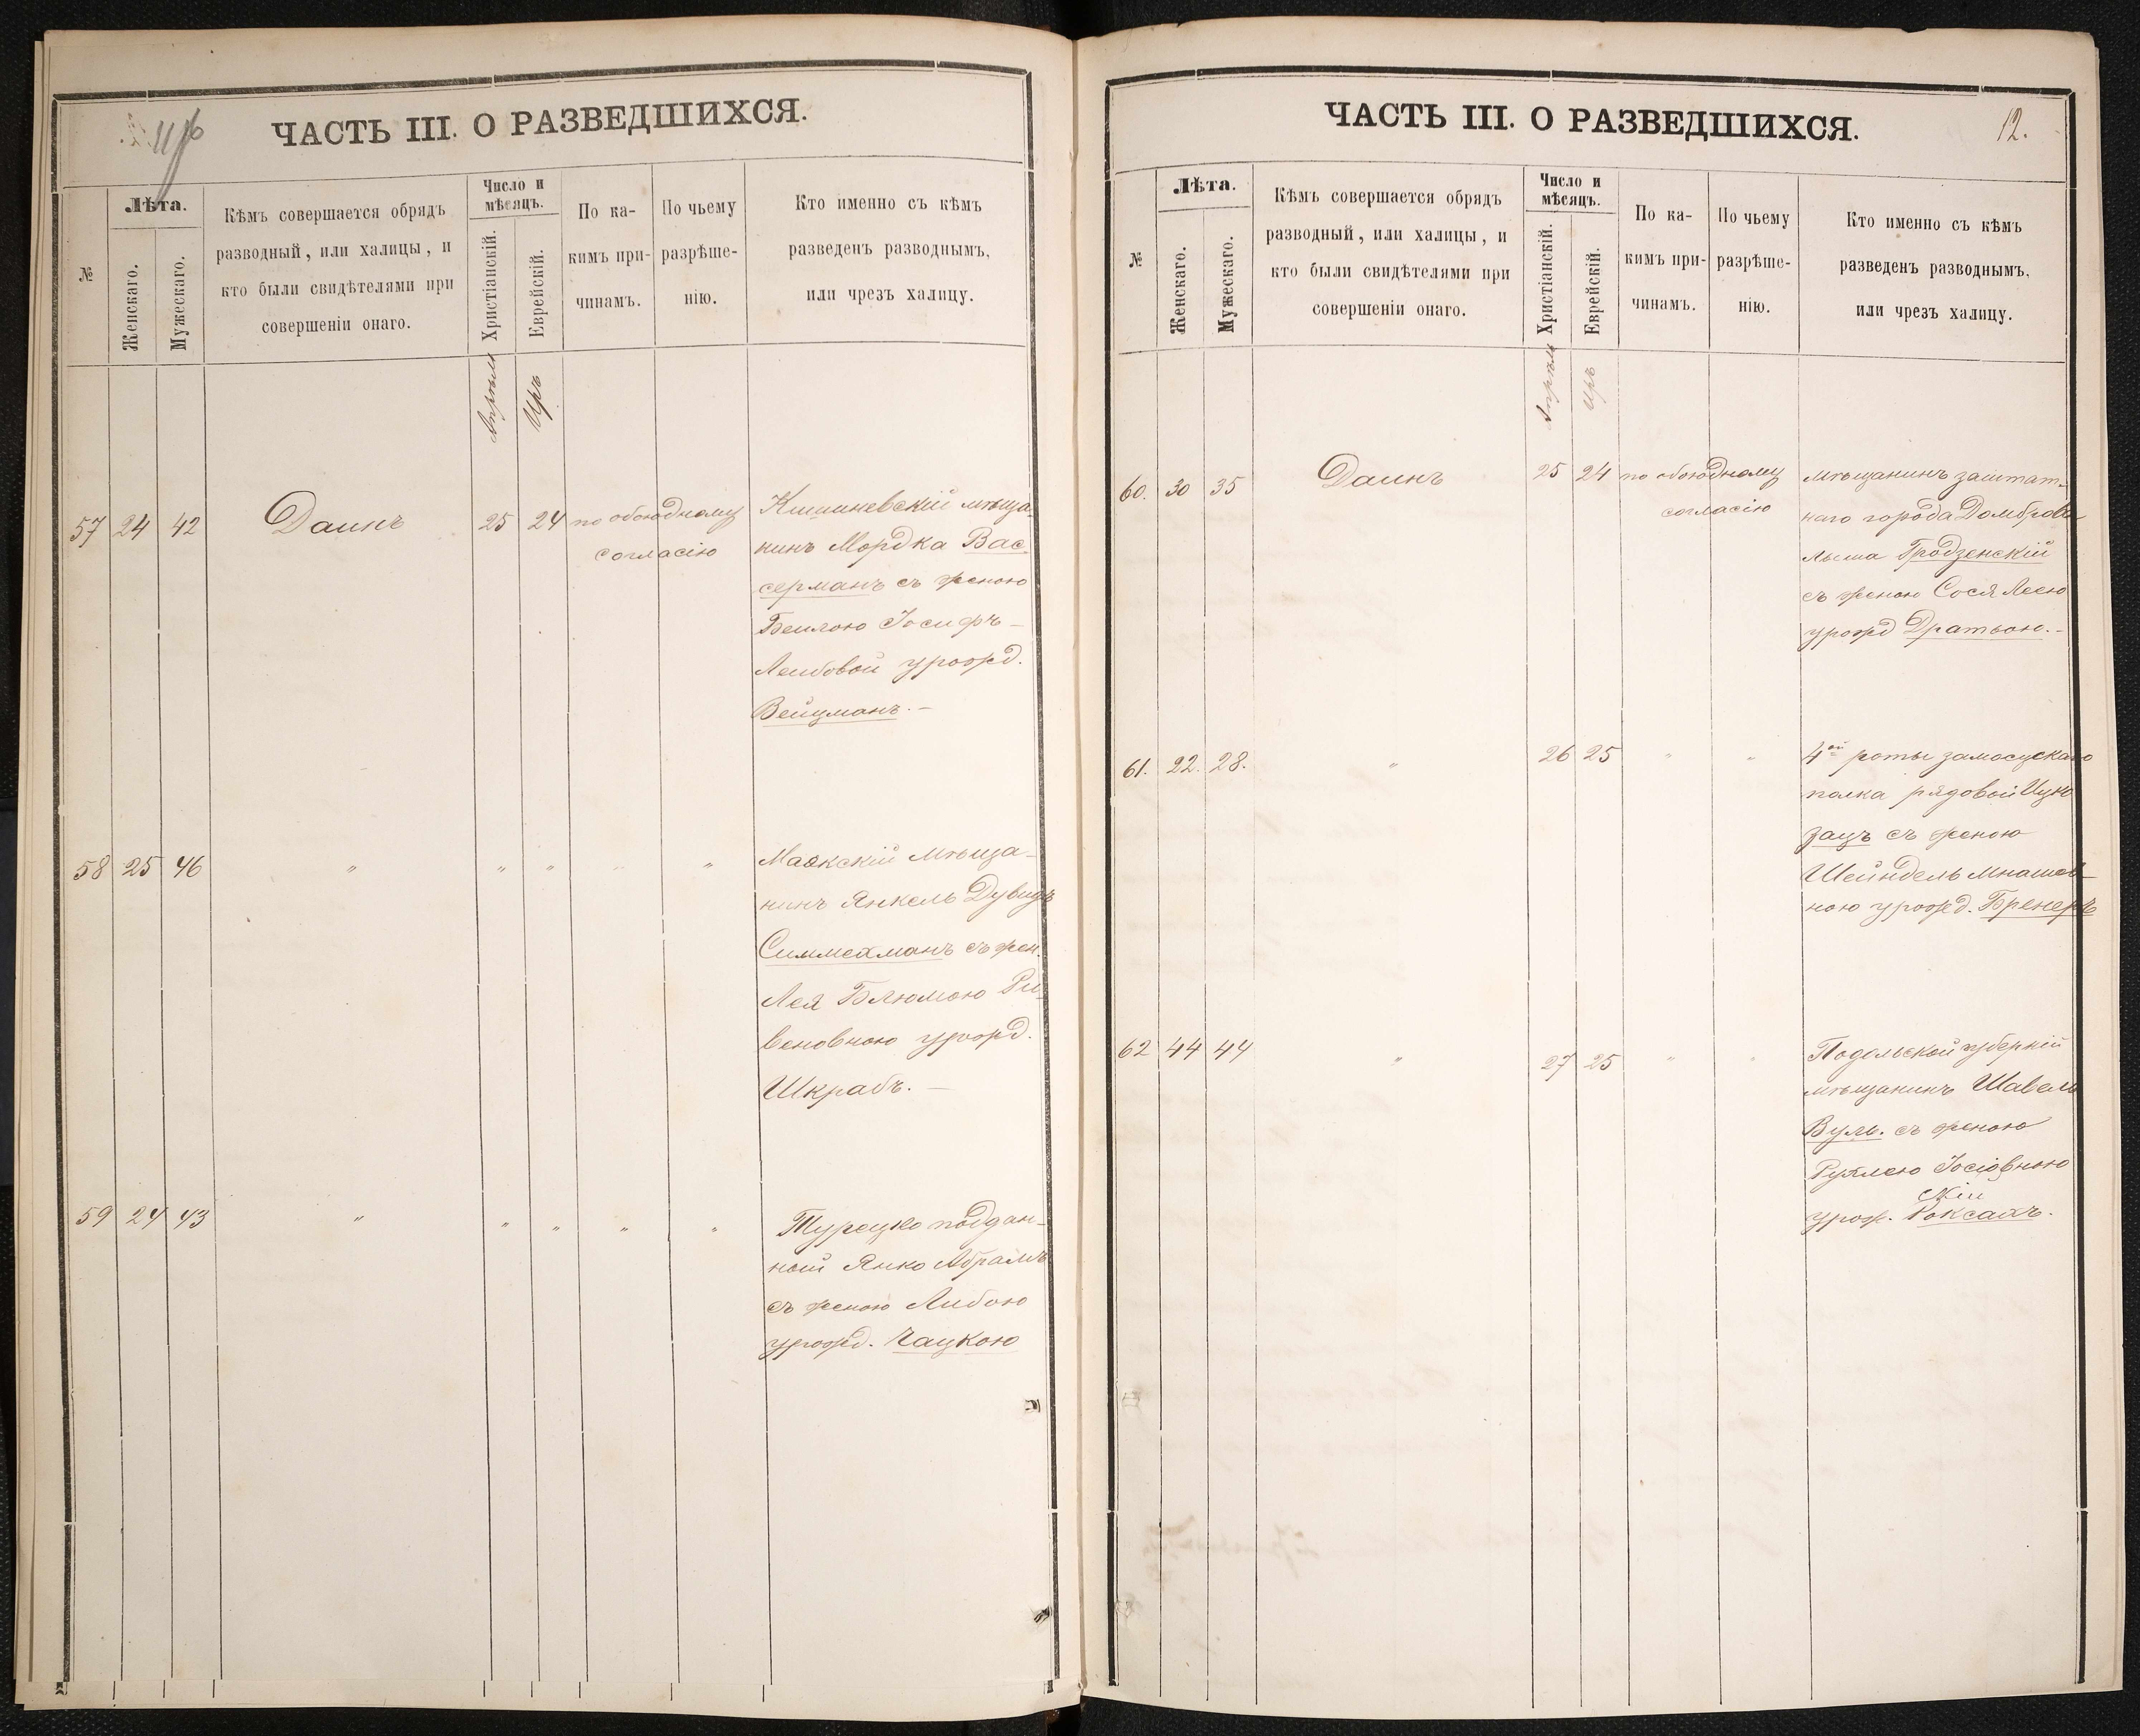 ЧАСТЬ III. О РАЗВЕДШИХСЯ.
№
Лѣта.
Женскаго.
Мужескаго.
Кѣмъ совершается обрядъ
разводный, или халицы, и
кто были свидѣтелями при
совершеніи онаго.
Число и
мѣсяцъ.
Христіанскій.
Еврейскій.
По ка-
кимъ при-
чинамъ.
По чьему
разрѣше-
нію.
Кто именно съ кѣмъ
разведенъ разводнымъ,
или чрезъ халицу.
Апрѣля
Иръ
57 24 42 Даинъ 25 24 по обоюдному
согласію
Кишиневскій мѣща-
нинъ Мордка Вас-
серманъ съ женою
Бейлою Іосифъ-
Лейбовой урожд.
Вейцманъ.-
58 25 46 " " " " "
Маякскій мѣща-
нинъ Янкель Дувидъ
Симмехманъ съ жен.
Лея Блюмою Ру-
веновною урожд.
Шкрабъ.-
59 24 43 " " " " "
Турецко поддан-
ный Янко Абрамъ
съ женою Либою
урожд. Чацкою
ЧАСТЬ III. О РАЗВЕДШИХСЯ.
12.
№
Лѣта.
Женскаго.
Мужескаго.
Кѣмъ совершается обрядъ
разводный, или халицы, и
кто были свидѣтелями при
совершеніи онаго.
Число и
мѣсяцъ.
Христіанскій.
Еврейскій.
По ка-
кимъ при-
чинамъ.
По чьему
разрѣше-
нію.
Кто именно съ кѣмъ
разведенъ разводнымъ,
или чрезъ халицу.
Апрѣль
Иръ
60. 30 35 Даинъ 25 24 по обоюдному
согласію
мѣщанинъ заштат-
наго города Домброва
Гродзенскій
съ женою Сося Леею
урожд Дратвон.-
61. 22. 28. " 26 25 " "
4ой роты замосцскаго
полка рядовой Ицко
Зацъ съ женою
Шейндель Мнашов-
ною урожд. Бренеръ
62 44 44 " 27 25 " "
Подольской губерніи
мѣщанинъ Шавель
Вуль. съ женою
Рухлею Іосіовною
скій
урож. Роксахъ.